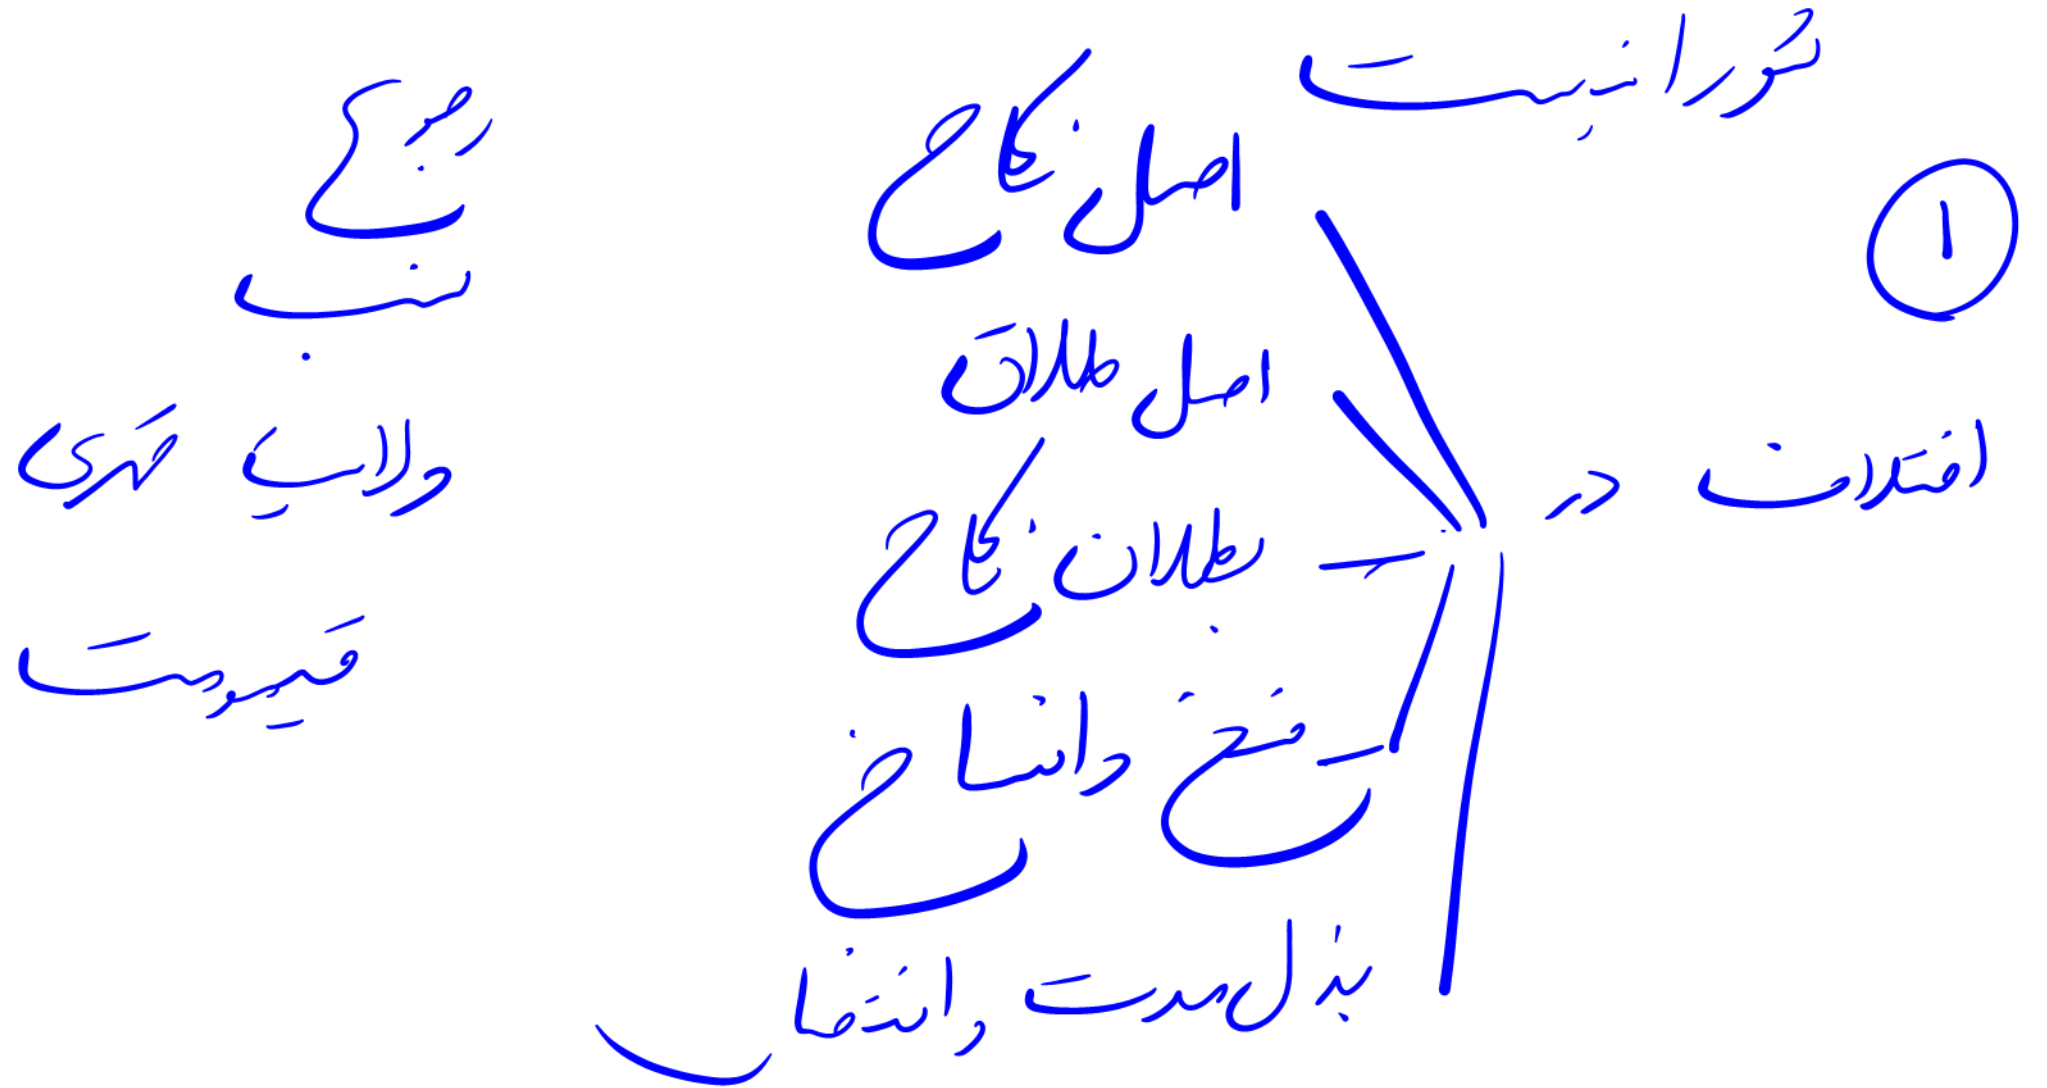 شورا نیست
۱
اختلاف در
اصل نکاح
اصل طلاق
بطلان نکاح
فسخ و انفساخ
بذل مدت و انقضا
رجوع
نسب
ولایت قهری
قیمومت